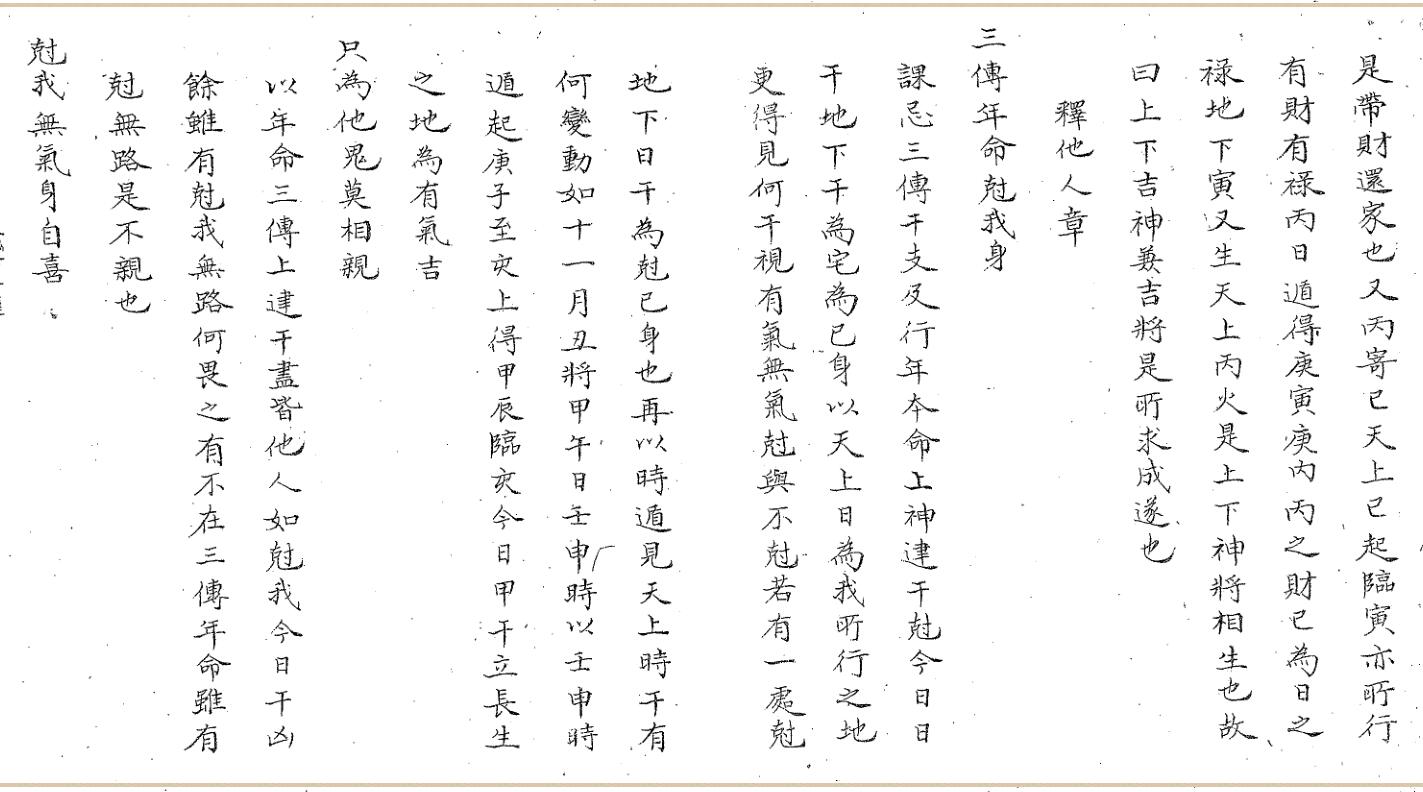 是帶財還家也又丙寄巳天上巳起臨寅亦所行
有財有祿丙日遁得庚寅庚內丙之財巳為日之
祿地下寅又生天上丙火是上下神將相生也故
曰上下吉神兼吉將是所求成遂也
釋他人章
三傳年命尅我身
課忌三傳干支及行年本命上神建干尅今日日
干地下干為宅為己身以天上日為我所行之地
更得見何干視有氣無氣尅與不尅若有一處尅
地下日干為尅己身也再以時遁見天上時干有
何變動如十一月丑將甲午日壬申時以壬申時
遁起庚子至亥上得甲辰臨亥今日甲干立長生
之地為有氣吉
只為他鬼莫相親
以年命三傳上建干盡皆他人如尅我今日干凶
餘雖有尅我無路何畏之有不在三傳年命雖有
尅無路是不親也
尅我無氣身自喜